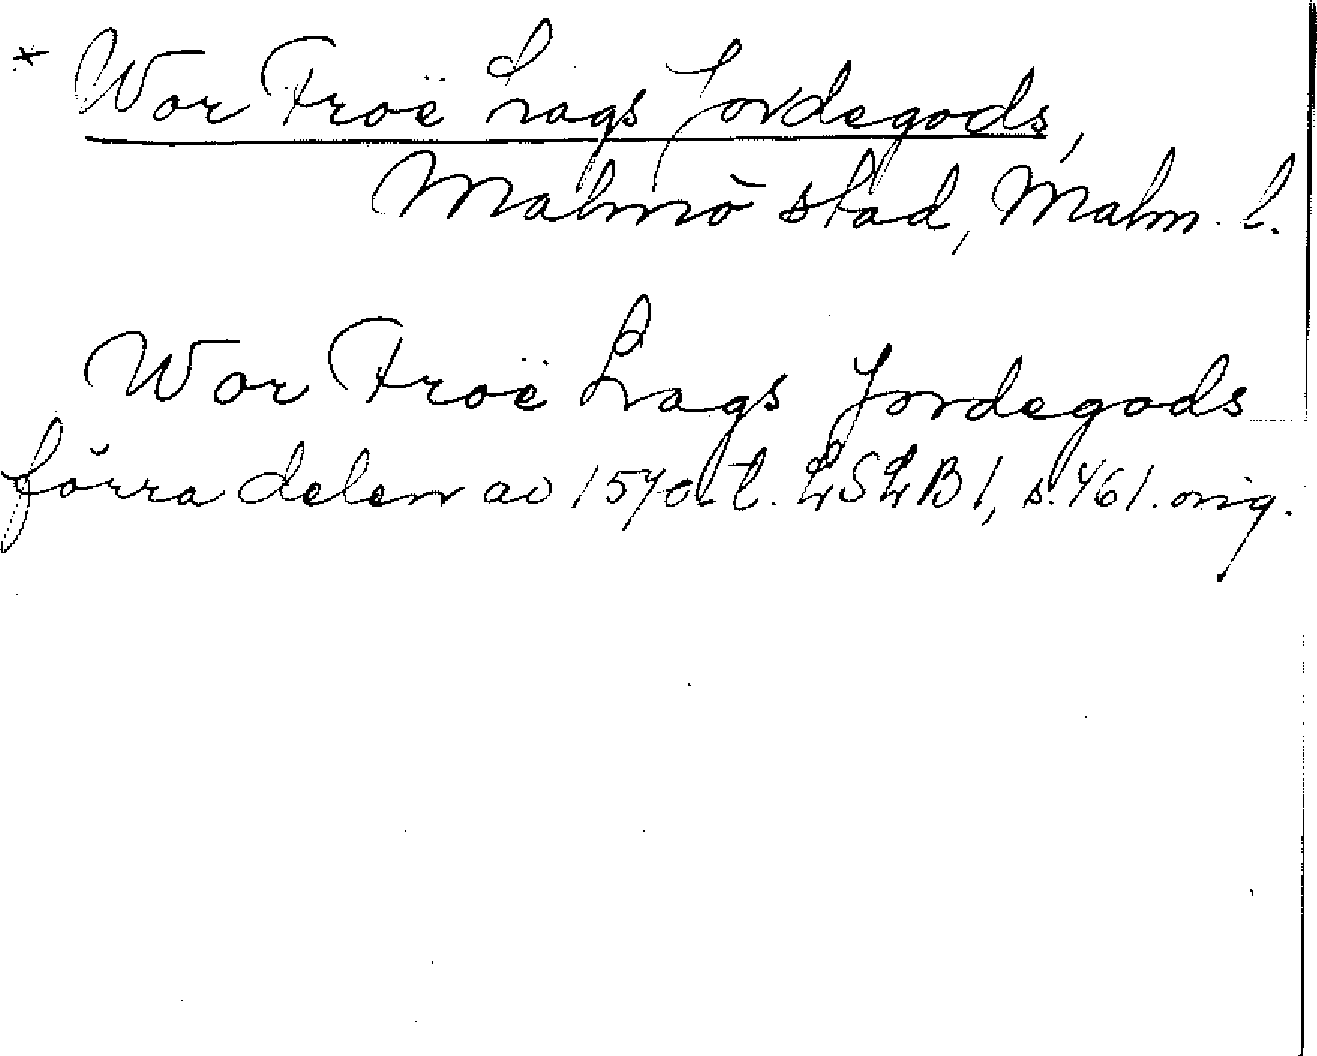 * Wor Froë Lags Jordegods,
Malmö stad, Malm. l.
Wor Froë Lags Jordegods
förra delen av 1570 t. LSLB 1, s. 461. orig.